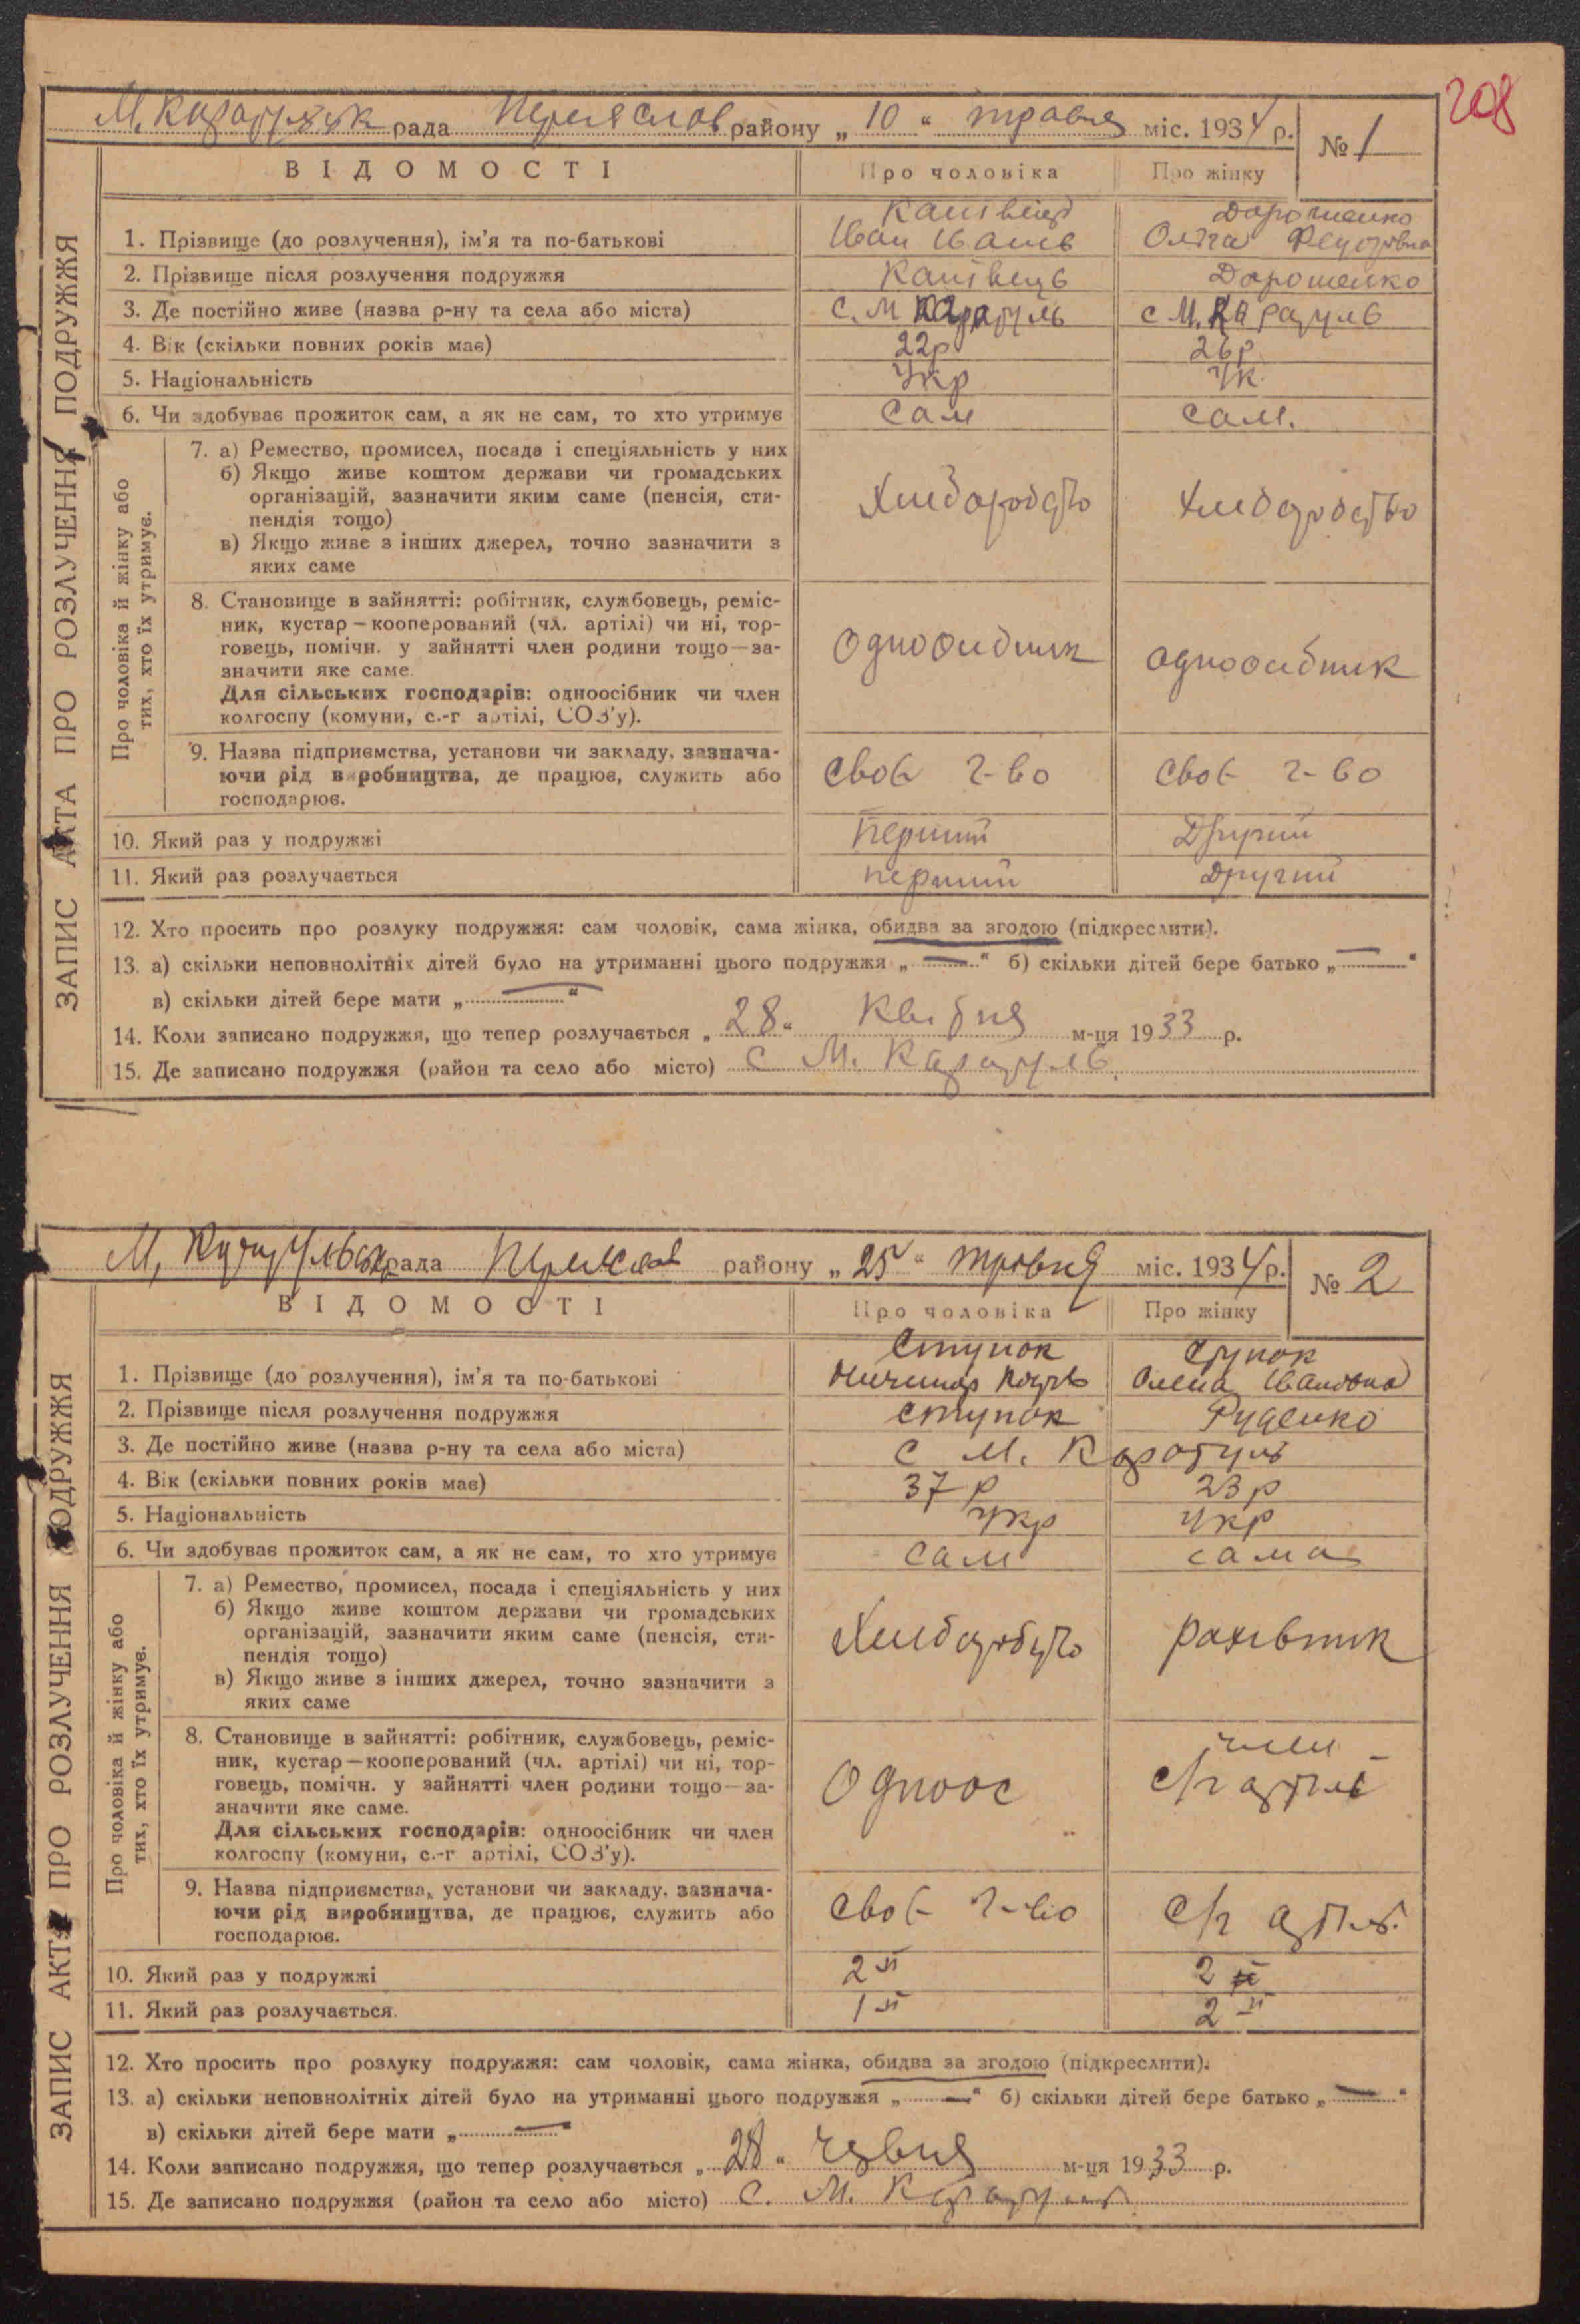 208
М. Каратульск рада Переяслов району „ 10 “ травня міс. 1934 р. № 1
ВІДОМОСТІ Про чоловіка Про жінку
ЗАПИС АКТА ПРО РОЗЛУЧЕННЯ ПОДРУЖЖЯ
Канівець Дорошенко
1. Прізвище (до розлучення), ім'я та по-батькові Іван Іванів Ольга Федорівна
2. Прізвище після розлучення подружжя Канівець Дорошенко
3. Де постійно живе (назва р-ну та села або міста) С. М Каратуль с М. Каратуль
4. Вік (скільки повних років має) 22р 26р
5. Національність Укр Ук
6. Чи здобуває прожиток сам, а як не сам, то хто утримує сам сам.
Про чоловіка й жінку або
тих, хто їх утримує.
7. а) Ремество, промисел, посада і спеціяльність у них
б) Якщо живе коштом держави чи громадських
організацій, зазначити яким саме (пенсія, сти-
пендія тощо) Хлиборобство Хлиборобство
в) Якщо живе з інших джерел, точно зазначити з
яких саме
8. Становище в зайнятті: робітник, службовець, реміс-
ник, кустар — кооперований (чл. артілі) чи ні, тор-
говець, помічн. у зайнятті член родини тощо — за-
значити яке саме. Одноосибник одноосибник
Для сільських господарів: одноосібник чи член
колгоспу (комуни, с.-г артілі, СОЗ'у).
9. Назва підприємства, установи чи закладу, зазнача-
ючи рід виробництва, де працює, служить або своє г-во своє г-во
господарює.
10. Який раз у подружжі перший Другий
11. Який раз розлучається перший Другий
12. Хто просить про розлуку подружжя: сам чоловік, сама жінка, обидва за згодою (підкреслити).
13. а) скільки неповнолітніх дітей було на утриманні цього подружжя „ — “ б) скільки дітей бере батько „ — “
в) скільки дітей бере мати „ — “
14. Коли записано подружжя, що тепер розлучається „ 28 “ Квитня м-ця 1933 р.
15. Де записано подружжя (район та село або місто) С М. Каратуль
М. Каратульська рада Переяслав району „ 25 “ травня міс. 1934 р. № 2
ВІДОМОСТІ Про чоловіка Про жінку
ЗАПИС АКТА ПРО РОЗЛУЧЕННЯ ПОДРУЖЖЯ
Ступок Ступок
1. Прізвище (до розлучення), ім'я та по-батькові Олена Івановна
2. Прізвище після розлучення подружжя Ступок Руденко
3. Де постійно живе (назва р-ну та села або міста) с М. Каратуль
4. Вік (скільки повних років має) 37 р 23 р
5. Національність Укр Укр
6. Чи здобуває прожиток сам, а як не сам, то хто утримує сам сама
Про чоловіка й жінку або
тих, хто їх утримує.
7. а) Ремество, промисел, посада і спеціяльність у них
б) Якщо живе коштом держави чи громадських
організацій, зазначити яким саме (пенсія, сти-
пендія тощо) Хлиборобство рахівник
в) Якщо живе з інших джерел, точно зазначити з
яких саме
8. Становище в зайнятті: робітник, службовець, реміс- член
ник, кустар — кооперований (чл. артілі) чи ні, тор-
говець, помічн. у зайнятті член родини тощо — за- Одноос с/г артілі
значити яке саме.
Для сільських господарів: одноосібник чи член
колгоспу (комуни, с.-г артілі, СОЗ'у).
9. Назва підприємства, установи чи закладу, зазнача-
ючи рід виробництва, де працює, служить або своє г-во с/г артіль
господарює.
10. Який раз у подружжі 2й 2й
11. Який раз розлучається. 1й 2й
12. Хто просить про розлуку подружжя: сам чоловік, сама жінка, обидва за згодою (підкреслити).
13. а) скільки неповнолітніх дітей було на утриманні цього подружжя „ — “ б) скільки дітей бере батько „ — “
в) скільки дітей бере мати „ — “
14. Коли записано подружжя, що тепер розлучається „ 28 “ червня м-ця 1933 р.
15. Де записано подружжя (район та село або місто) С. М. Каратуль